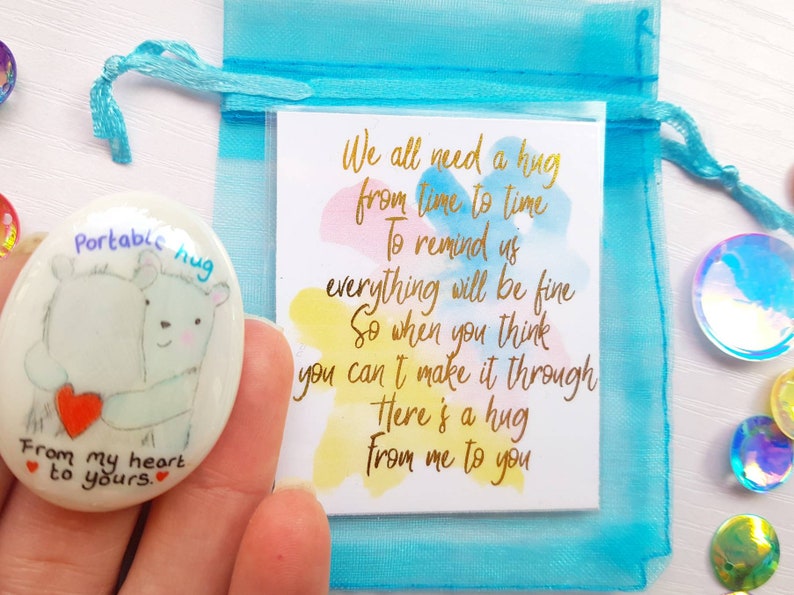 Portable hug
From my heart
to yours.
We all need a hug
from time to time
To remind us
everything will be fine
So when you think
you can't make it through
Here's a hug
From me to you